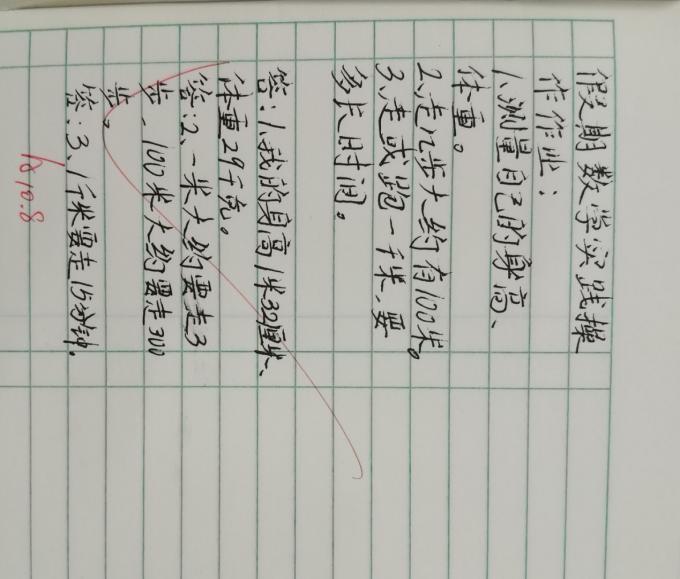 假期数学实践操
作作业：
1、测量自己的身高、
体重。
2、走几步大约有100米。
3、走或跑一千米，要
多长时间。
答：1、我的身高1米32厘米、
体重29千克。
答：2、一米大约要走3
步，100米大约要走300
步。
答：3、1千米要走15分钟。
10.8